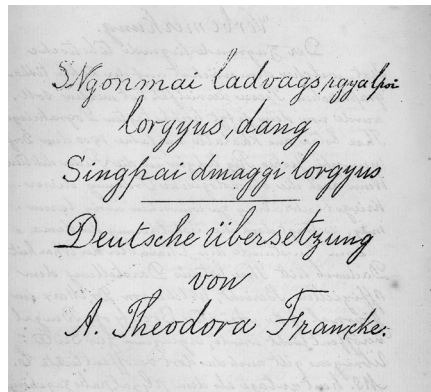 SNgonmai ladvagsrgyalpoi
lorgyus, dang
Singpai dmaggi lorgyus
Deutsche Übersetzung
von
A. Theodora Francke.